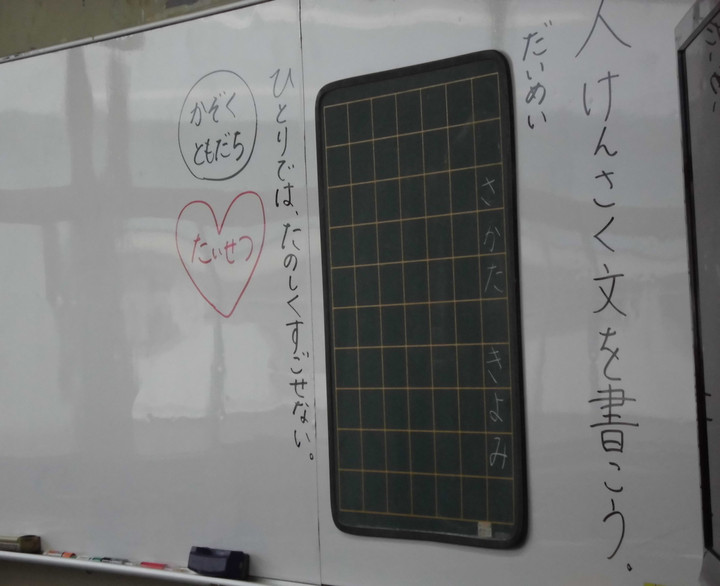 人けんさく文を書こう。
だいめい
さかた きよみ
ひとりでは、たのしくすごせない。
かぞく
ともだち
たいせつ